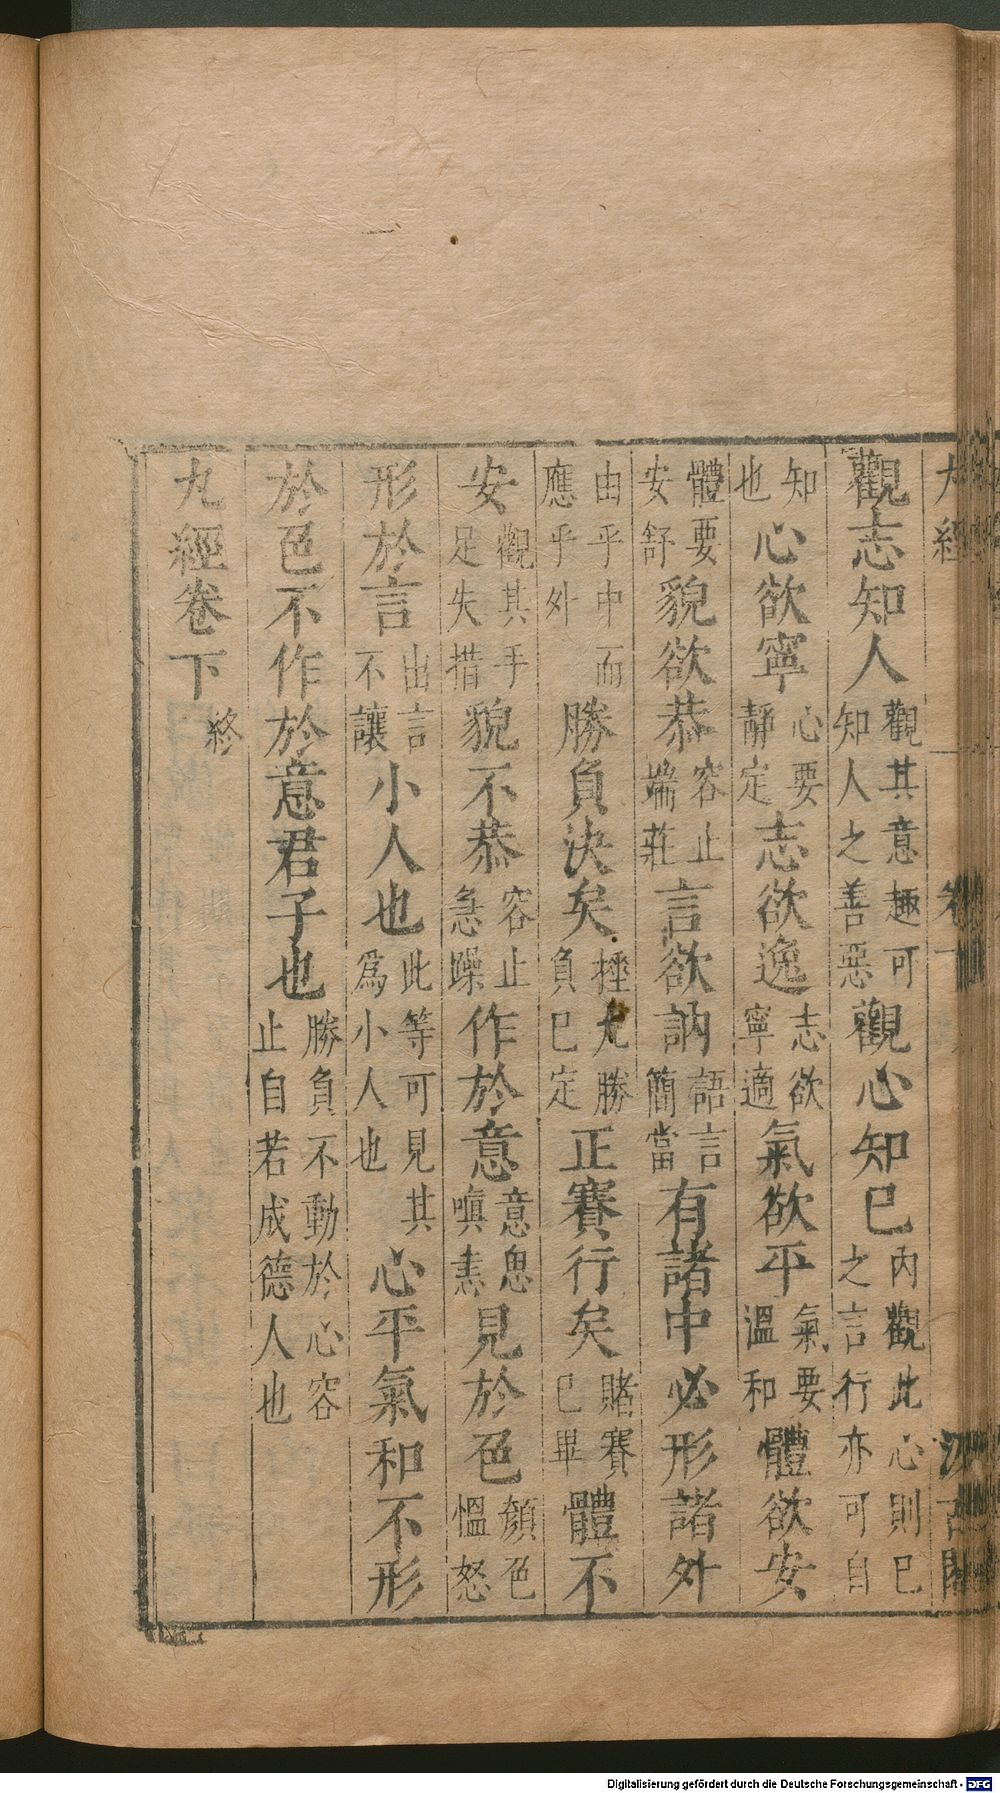 觀志知人觀其意趣可知人之善惡觀心知巳內觀此心則巳之言行亦可自
知也心欲寧心要靜定志欲逸志欲寧適氣欲平氣要溫和體欲安
體要安舒貌欲恭容止端莊言欲訥語言簡當有諸中必形諸外
由乎中而應乎外勝負決矣勝負巳定正賽行矣賭賽巳畢體不
安觀其手足失措貌不恭容止急躁作於意意思嗔恚見於色顏色慍怒
形於言出言不讓小人也此等可見其爲小人也心平氣和不形
於色不作於意君子也勝負不動於心容止自若成德人也
九經卷下終
Digitalisierung gefördert durch die Deutsche Forschungsgemeinschaft - DFG